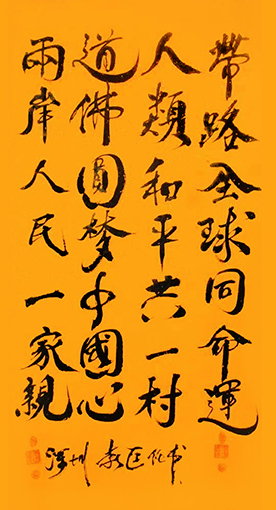 帶路全球同命運
人類和平共一村
道佛圓梦中國心
兩岸人民一家親
深圳